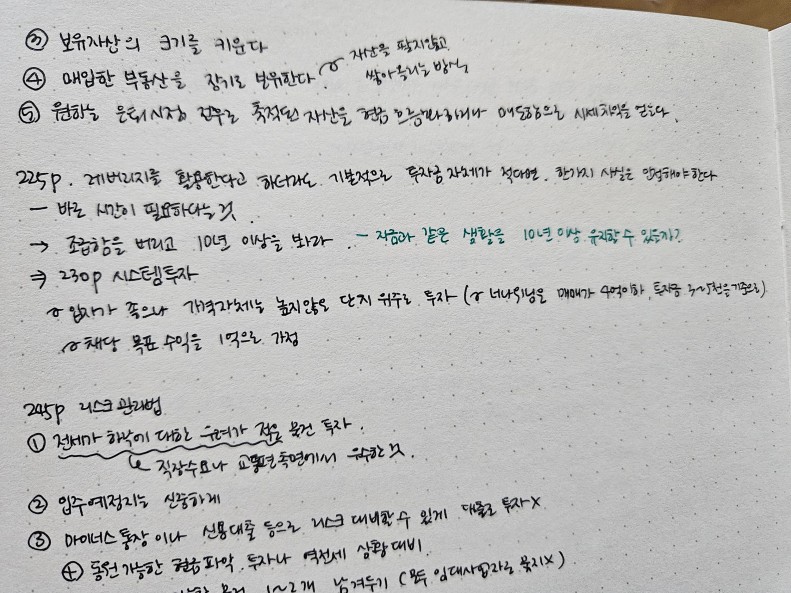 ③ 보유자산의 크기를 키운다
④ 매입한 부동산을 장기로 보유한다. 자산을 팔지않고
쌓아올리는 방식
⑤ 원하는 은퇴시점 전후로 축적된 자산을 현금 매도함으로 시세차익을 얻는다.
225p. 레버리지를 활용한다고 하더라도 기본적으로 투자금 자체가 적다면, 한가지 사실은 인정해야한다
- 바로 시간이 필요하다는 것.
→ 조급함을 버리고 10년 이상을 봐라. - 지금과 같은 생활을 10년이상 유지할 수 있을까?
⇒ 230p 시스템투자
입지가 좋으나 가격자체는 높지않은 단지 위주로 투자 (너나위님은 매매가 4억이하, 투자금 3~5천을 기준으로)
채당 목표 수익을 1억으로 가정
245p 리스크 관리법
① 전세가 하락에 대한 우려가 적은 물건 투자.
직장수요나 교통편 측면에서 우수한 것.
② 입주예정지는 신중하게
③ 마이너스 통장이나 신용대출 등으로 리스크 대비할 수 있게 대출로 투자X
⊕ 동원가능한 현금파악, 투자나 역전세 상황대비.
1~2개 남겨두기 (모두 임대사업자로 묶지X)